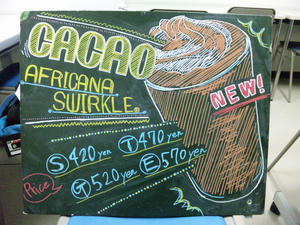 CACAO
AFRICANA
SWIRKLE®
NEW!
S 420 yen T 470 yen
G 520 yen E 570 yen
Price